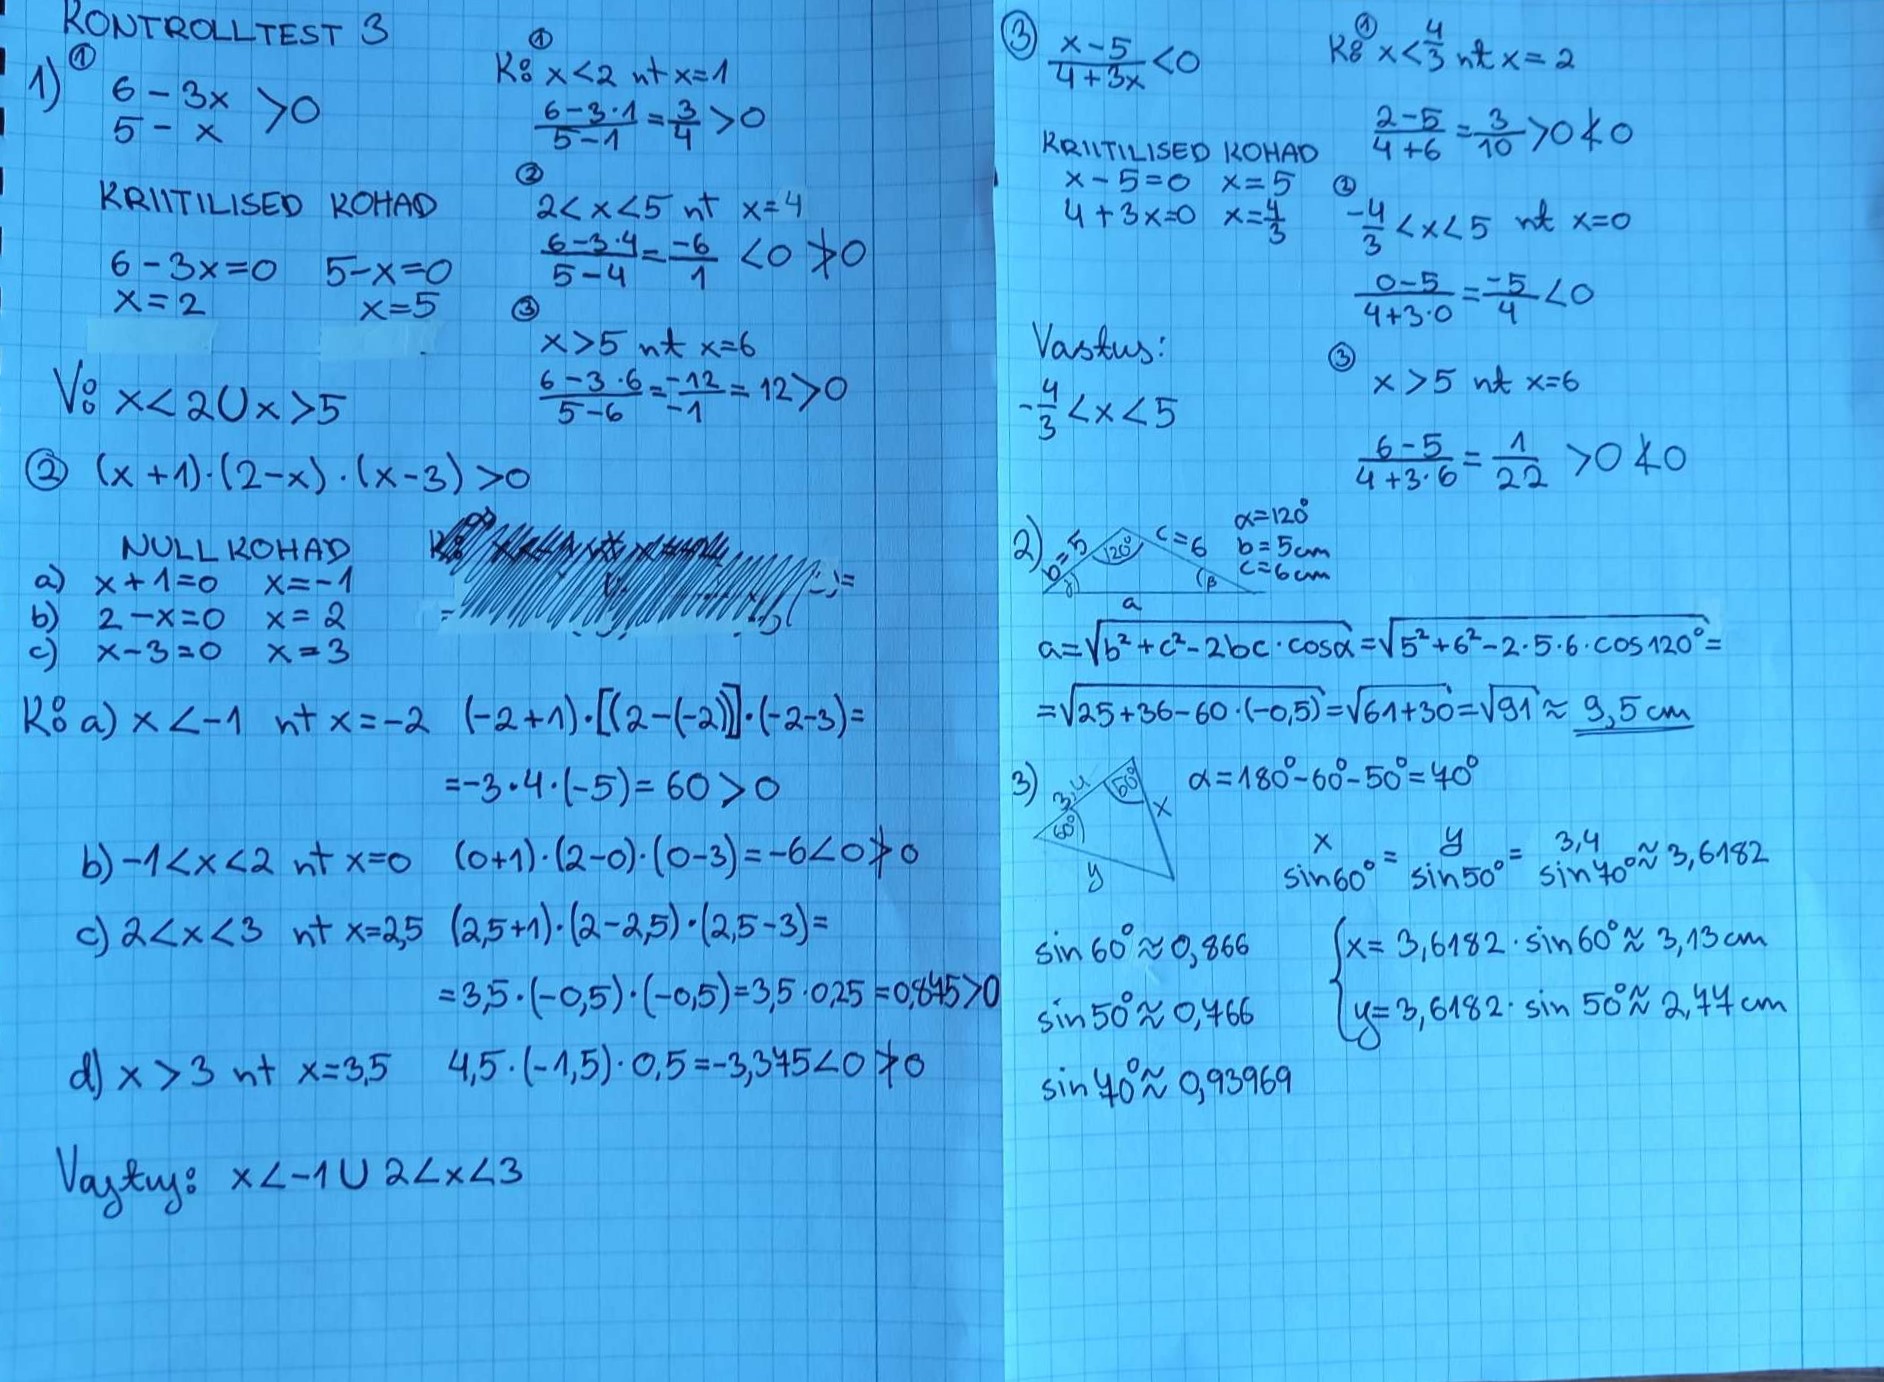 KONTROLLTEST 3
1) ①
6 - 3x
5 - x > 0
KRIITILISED KOHAD
6 - 3x = 0 5 - x = 0
x = 2 x = 5
V: x < 2 U x > 5
①
K: x < 2 nt x = 1
6 - 3·1 / 5 - 1 = 3/4 > 0
②
2 < x < 5 nt x = 4
6 - 3·4 / 5 - 4 = -6/1 < 0 ≯ 0
③
x > 5 nt x = 6
6 - 3·6 / 5 - 6 = -12/-1 = 12 > 0
② (x + 1)·(2 - x)·(x - 3) > 0
NULLKOHAD
a) x + 1 = 0 x = -1
b) 2 - x = 0 x = 2
c) x - 3 = 0 x = 3
K: a) x < -1 nt x = -2 (-2 + 1)·[(2 - (-2)]·(-2 - 3) =
= -3·4·(-5) = 60 > 0
b) -1 < x < 2 nt x = 0 (0 + 1)·(2 - 0)·(0 - 3) = -6 < 0 ≯ 0
c) 2 < x < 3 nt x = 2,5 (2,5 + 1)·(2 - 2,5)·(2,5 - 3) =
= 3,5·(-0,5)·(-0,5) = 3,5·0,25 = 0,875 > 0
d) x > 3 nt x = 3,5 4,5·(-1,5)·0,5 = -3,375 < 0 ≯ 0
Vastus: x < -1 U 2 < x < 3
③ x - 5 / 4 + 3x < 0
KRIITILISED KOHAD
x - 5 = 0 x = 5
4 + 3x = 0 x = 4/3
Vastus:
-4/3 < x < 5
①
K: x < 4/3 nt x = 2
2 - 5 / 4 + 6 = 3/10 > 0 ≮ 0
②
-4/3 < x < 5 nt x = 0
0 - 5 / 4 + 3·0 = -5/4 < 0
③
x > 5 nt x = 6
6 - 5 / 4 + 3·6 = 1/22 > 0 ≮ 0
2) b = 5 120° c = 6 γ β a
α = 120°
b = 5 cm
c = 6 cm
a = √(b² + c² - 2bc·cosα) = √(5² + 6² - 2·5·6·cos120°) =
= √(25 + 36 - 60·(-0,5)) = √(61 + 30) = √91 ≈ 9,5 cm
3) 3,4 50° 60° x y
α = 180° - 60° - 50° = 70°
x / sin60° = y / sin50° = 3,4 / sin70° ≈ 3,6182
sin 60° ≈ 0,866
sin 50° ≈ 0,766
sin 70° ≈ 0,93969
{ x = 3,6182·sin60° ≈ 3,13 cm
y = 3,6182·sin 50° ≈ 2,77 cm